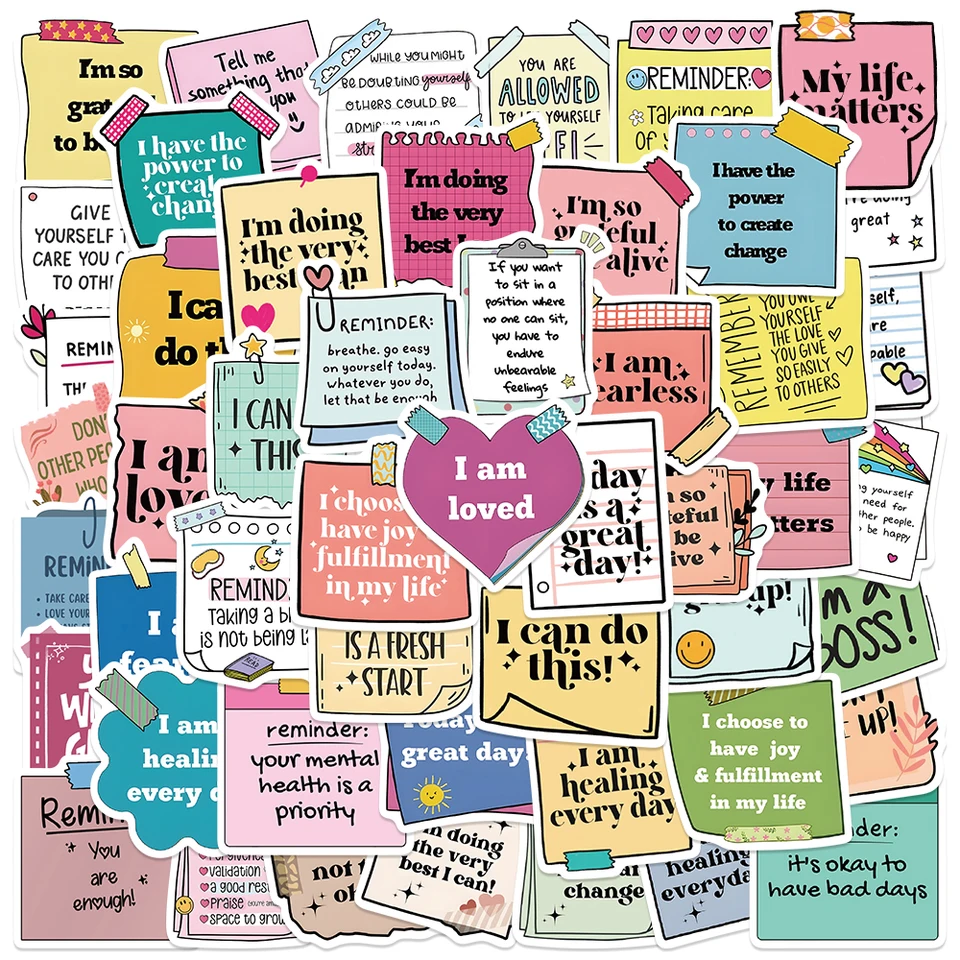 I'm so
to b
Tell me
something that
you
WHILE YOU MIGHT
BE DOUBTING yourself
OTHERS COULD BE
YOU ARE
ALLOWED
YOURSELF
REMINDER:
Taking care
of
My life
matters
I have the
power to
chan
I'm doing
the very
I'm so
alive
I have the
power
to create
change
GIVE
YOURSELF T
CARE YOU G
TO OTH
I'm doing
the very
best
an
great
If you want
to sit in a
position where
no one can sit,
you have to
endure
unbearable
feelings
I ca
do t
REMINDER:
breathe. go easy
on yourself today.
whatever you do,
let that be enough
I am
earless
REMEMBER
YOU OWE
YOURSELF
THE LOVE
YOU GIVE
SO EASILY
TO OTHERS
self,
are
pable
REMIN
TH
I CAN
THIS
DON'
OTHER PEO
WHO
I am
love
I am
loved
day
is a
great
day!
so
teful
be
ive
y life
tters
ng yourself
need for
her people.
be happy
I choos
have joy
fulfillment
in my life
REMIN
TAKE CARE
LOVE YOUR
REMIND
Taking a b
is not being la
I a
fear
IS A FRESH
START
I can do
this!
up!
m a
BOSS!
I am
healin
every d
reminder:
your mental
health is a
priority
Today
great day!
I am
healing
every day
I choose to
have joy
& fulfillment
in my life
UP!
Remin
You
are
enough!
validation
a good res
Praise
space to grow
not
m doing
the very
best I can!
change
healing
everyda
der:
it's okay to
have bad days